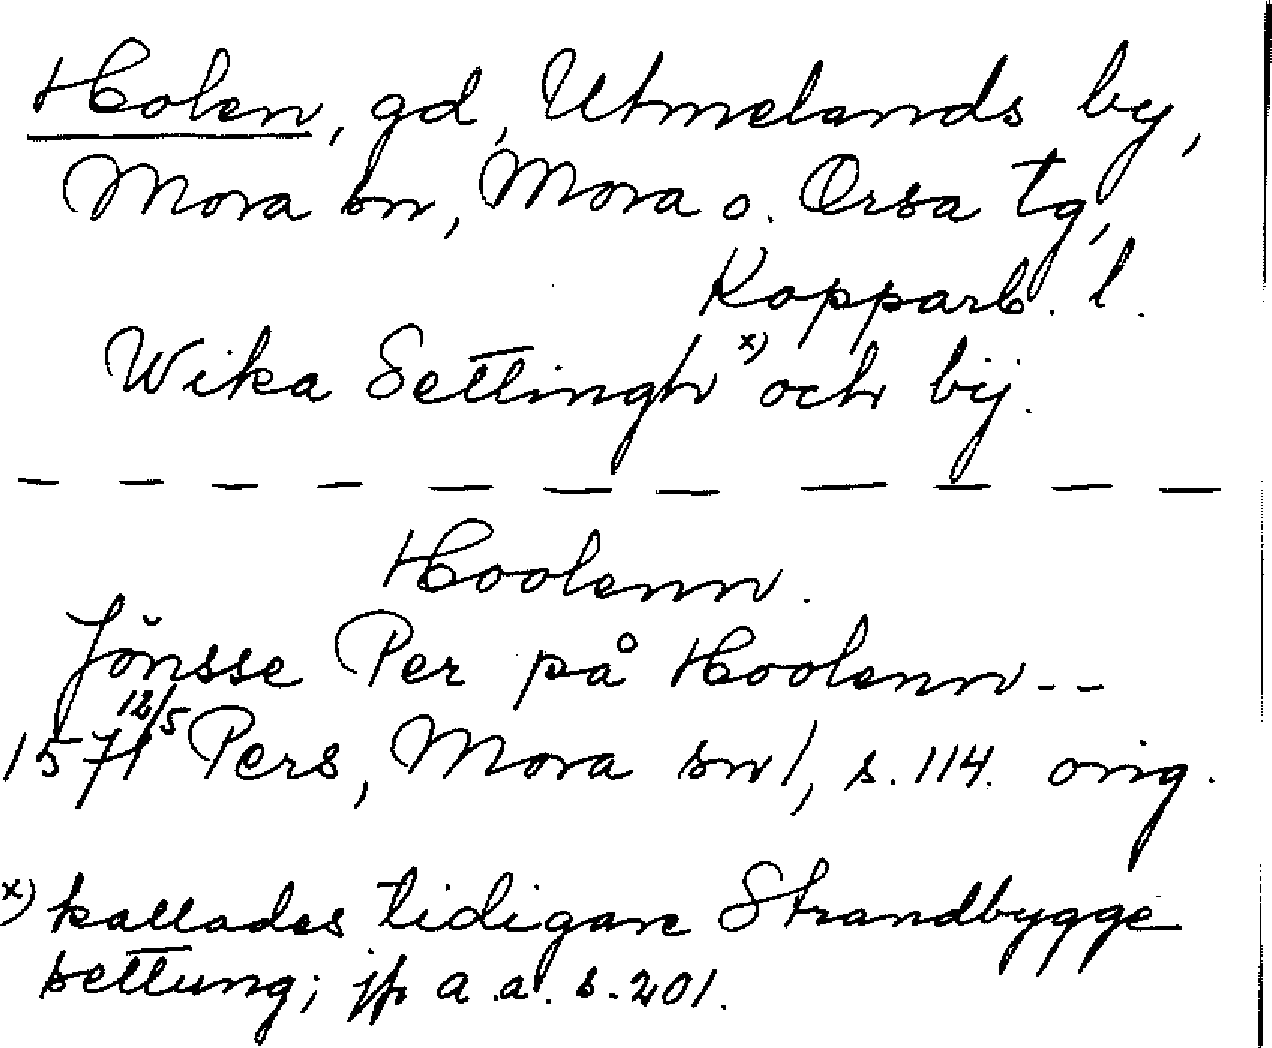 Holen, gd, Utmelands by,
Mora sn, Mora o. Orsa tg,
Kopparb. l.
Wika Settingh x) och bij.
Hoolenn.
Jönsse Per på Hoolenn--
1571 12/5 Pers, Mora sn/, s. 114. orig.
x) kallades tidigare Strandbygge
settung; jfr a.a. s. 201.